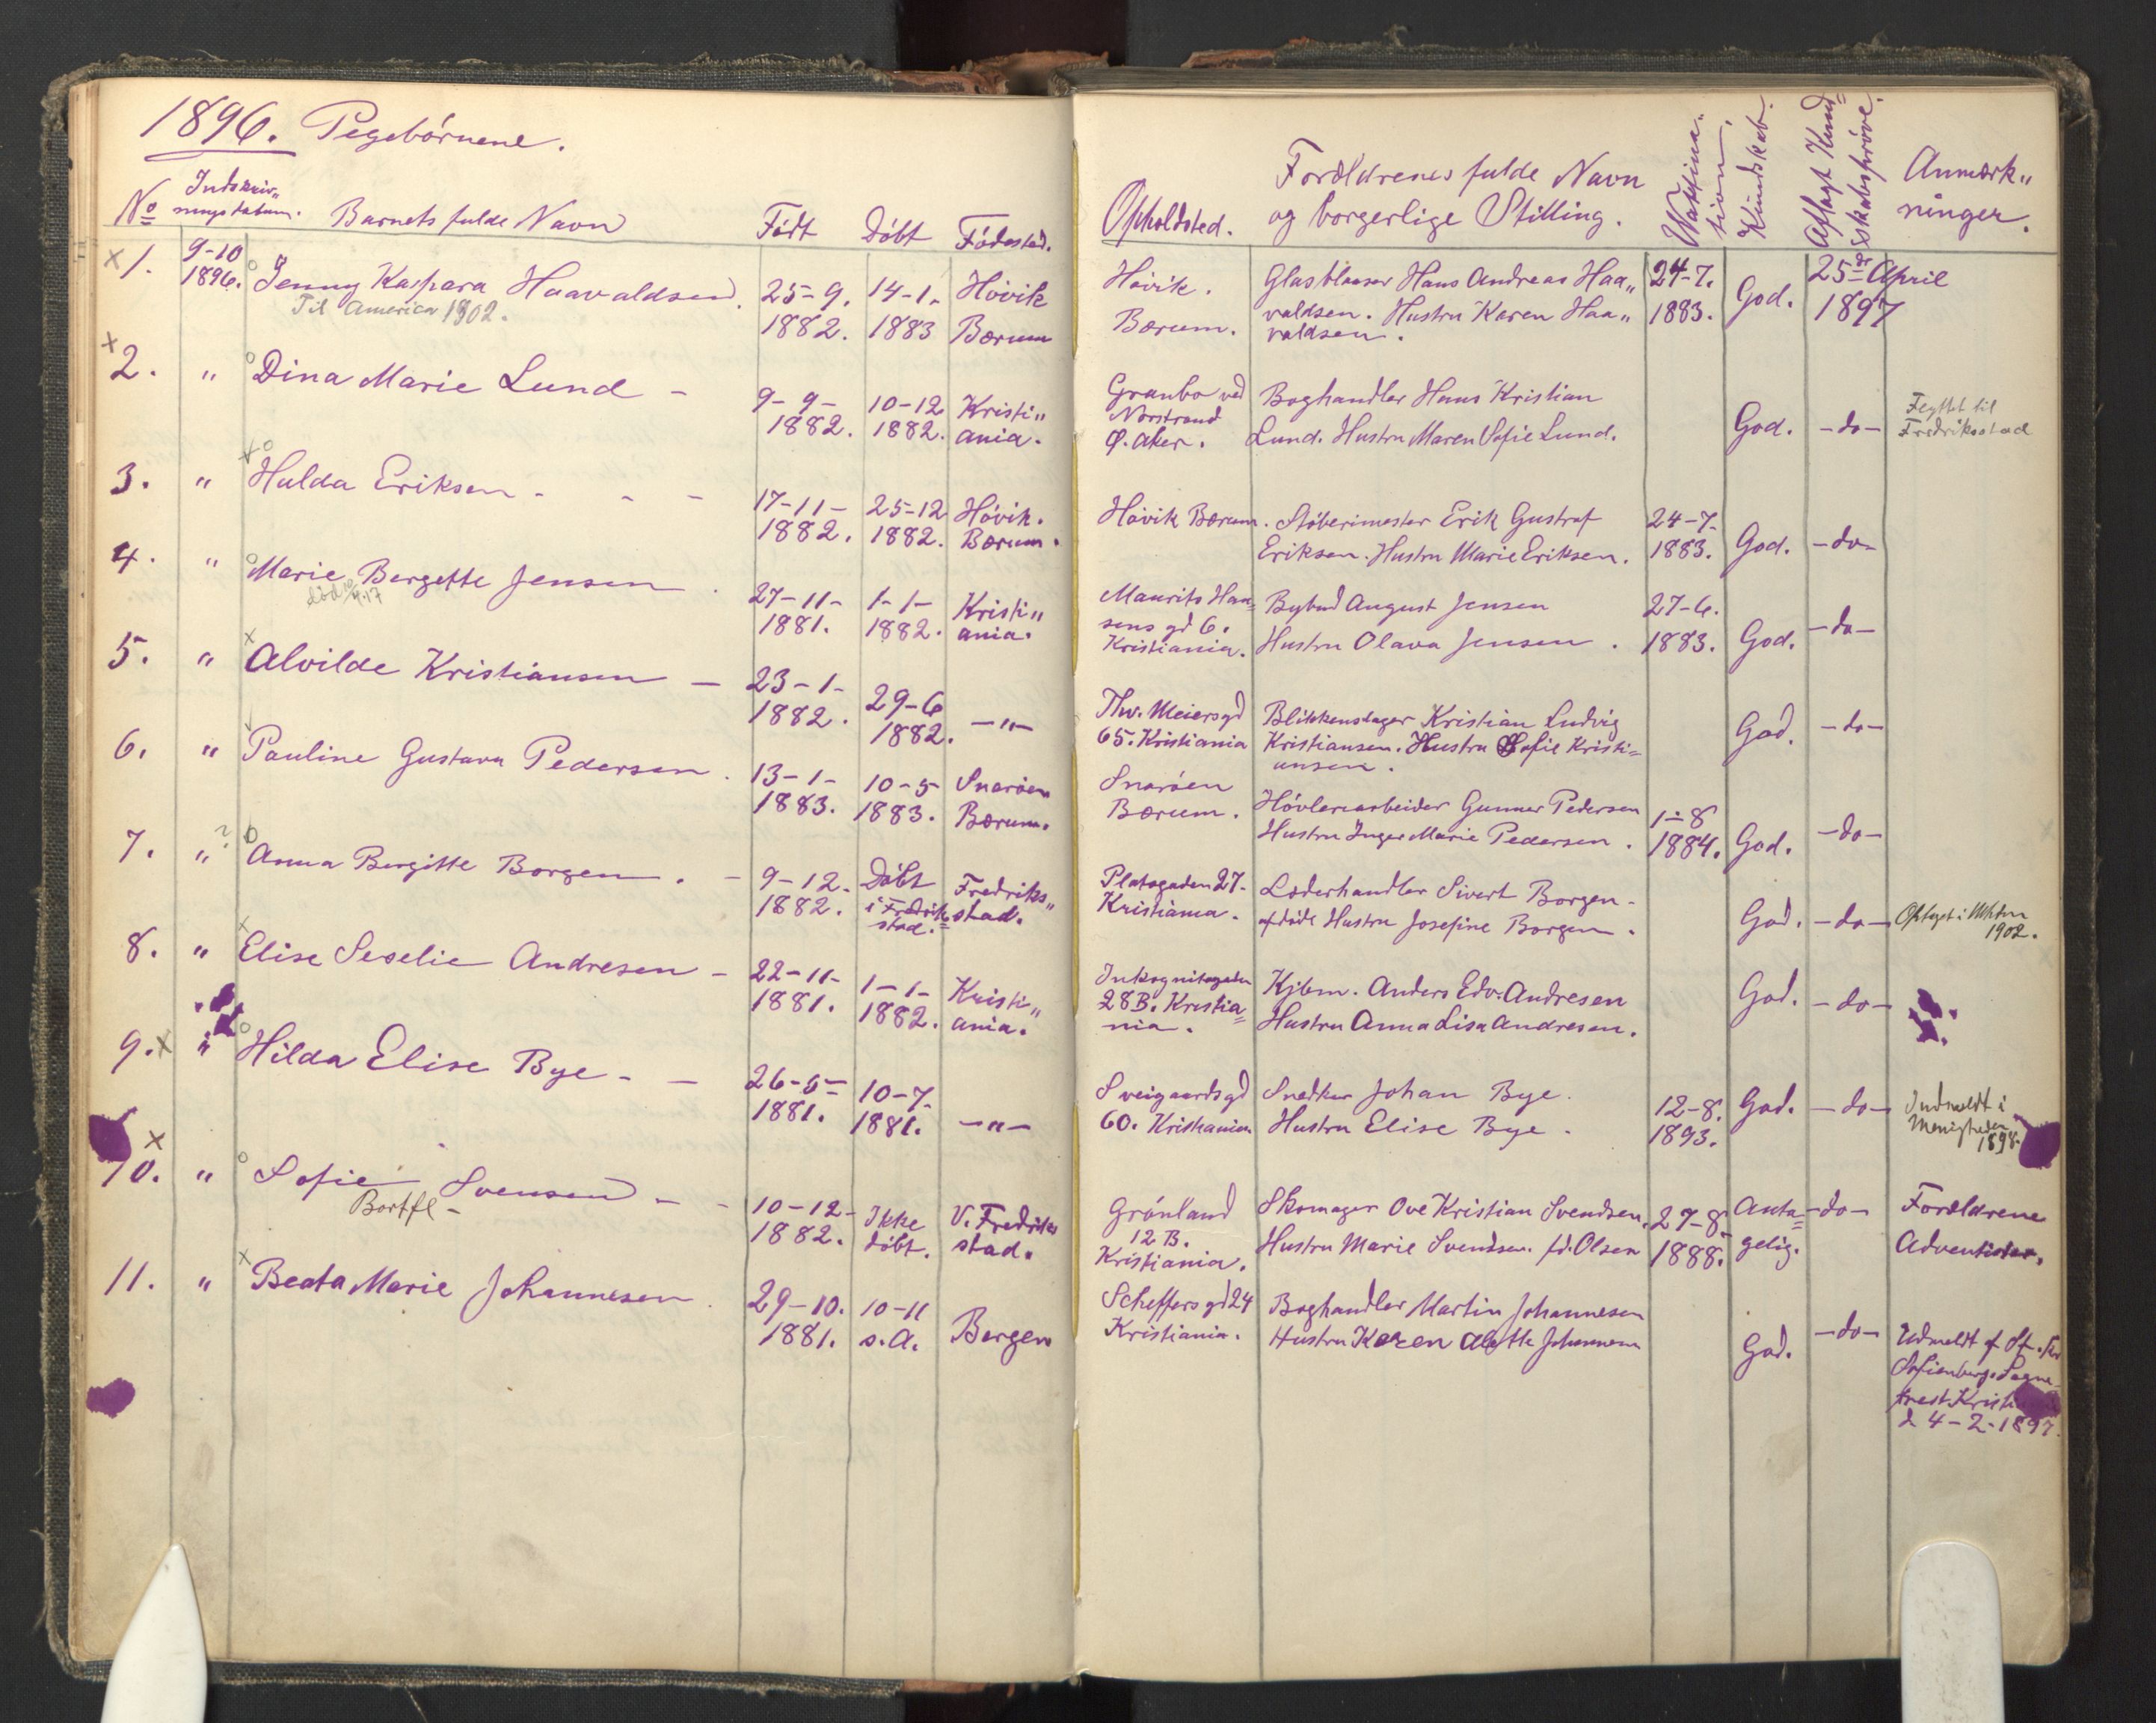 1896. Pigebörnene.
No Indskriv„ ningsdatum. Barnets fulde Navn Födt Döbt Födested.
x 1. 9-10 1896. Jenny Kaspara Haavaldsen. 25-9. 1882. 14-1. 1883 Hövik Bærum
Til America 1902.
x 2. „ Dina Marie Lund - 9-9- 1882. 10-12 1882. Kristi„ ania.
3. „ Hulda Eriksen - - - 17-11- 1882. 25-12 1882. Hövik. Bærum.
4. „ Marie Bergette Jensen . 27-11- 1881. 1-1- 1882. Kristi„ ania.
död 10/4.17
5. „ Alvilde Kristiansen - 23-1- 1882. 29-6 1882. -„-
6. „ Pauline Gustava Pedersen . 13-1- 1883. 10-5 1883. Snaröen Bærum.
7. „ ? Anna Bergitte Borgen . - 9-12. 1882. Döbt i Fredrik= stad. Fredriks„ stad.
8. „ Elise Seselie Andresen - 22-11- 1881. 1-1- 1882. Kristi„ ania.
9. x „ Hilda Elise Bye - - 26-5- 1881. 10-7- 1881. -„-
x 10. „ Sofie Svensen - - 10-12- 1882. Ikke döbt. V. Fredriks stad.
Bortfl -
11. „ Beata Marie Johannesen . 29-10. 1881. 10-11 s.A. Bergen
Opholdsted. Forældrenes fulde Navn og borgerlige Stilling. Vaktina- tion. Kundskab. Aflagt Kund= skabsprøve. Anmærk„ ninger.
Hövik. Bærum. Glasblaaser Hans Andreas Haa„ valdsen. Hustru Karen Haa„ valdsen. 24-7. 1883. God. 25de April 1897
Granbo ved Norstrand Ø. Aker. Boghandler Hans Kristian Lund. Hustru Maren Sofie Lund. God. -do- Flyttet til Fredriksstad
Hövik Bærum. Støberimester Erik Gustraf Eriksen. Hustru Marie Eriksen. 24-7- 1883. God. -do-
Maurits Han= sens gd 6. Kristiania. Bybud August Jensen Hustru Olava Jensen . 27-6. 1883. God. -do-
Thv. Meiersgd 65. Kristiania Blikkenslager Kristian Ludvig Kristiansen. Hustru Sofie Kristi= ansen. God. -do-
Snaröen Bærum. Hövleriarbeider Gunner Pedersen Hustru Inger Marie Pedersen . 1-8 1884. God. -do-
Platogaden 27. Kristiania. Læderhandler Sivert Borgen- afdöde Hustru Josefine Borgen . God. -do- Optaget i Mhtn 1902.
Inkognitogaden 28B. Kristia= nia. Kjbm. Anders Edv. Andresen Hustru Anna Lisa Andresen. God. -do-
Sveigaardsgd 60. Kristiania Snedker Johan Bye. Hustru Elise Bye . 12-8. 1893. God. -do- Indmeldt i Menigheden 1898.
Grönland 12 B. Kristiania. Skomager Ove Kristian Svendsen. Hustru Marie Svendsen. fd. Olsen 27-8 1888. Anta= gelig. -do- Forældrene Adventister.
Scheffersgd 24 Kristiania. Boghandler Martin Johannesen Hustru Karen Alette Johannesen God. -do- Udmeldt af St. Kr Sofienbergs Sogne prest. Kristi d 4-2-1897.